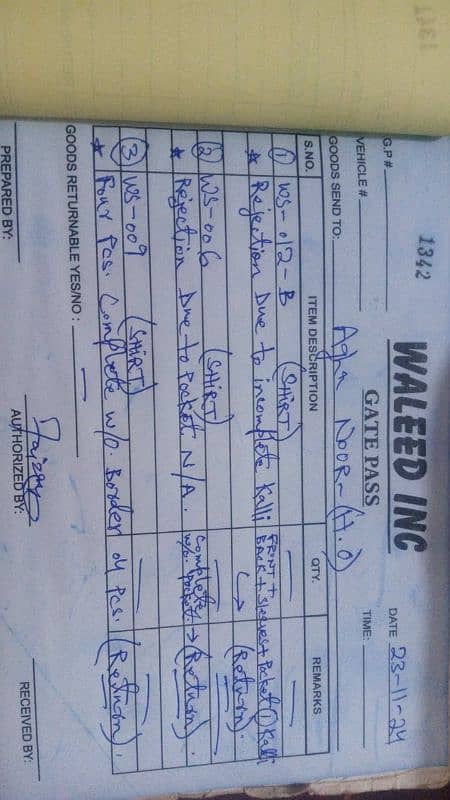 1342
WALEED INC
GATE PASS
DATE 23-11-24
G.P #
VEHICLE #
TIME:
GOODS SEND TO: Agha NOOR (H.O)
S.NO. ITEM DESCRIPTION QTY. REMARKS
① WS-012-B (SHIRT) — —
* Rejection Due to incomplete Kalli FRONT + BACK + Sleeves + Pocket ① Kalli
↳ (Return).
② WS-006 (SHIRT) — —
* Rejection Due to Pocket N/A. Complete w/o. Pocket. → (Return).
③ WS-009 (SHIRT) — —
* Four Pcs. Complete w/o. Border 04 Pcs. (Return).
GOODS RETURNABLE YES/NO : —
PREPARED BY:
AUTHORIZED BY:
RECEIVED BY: